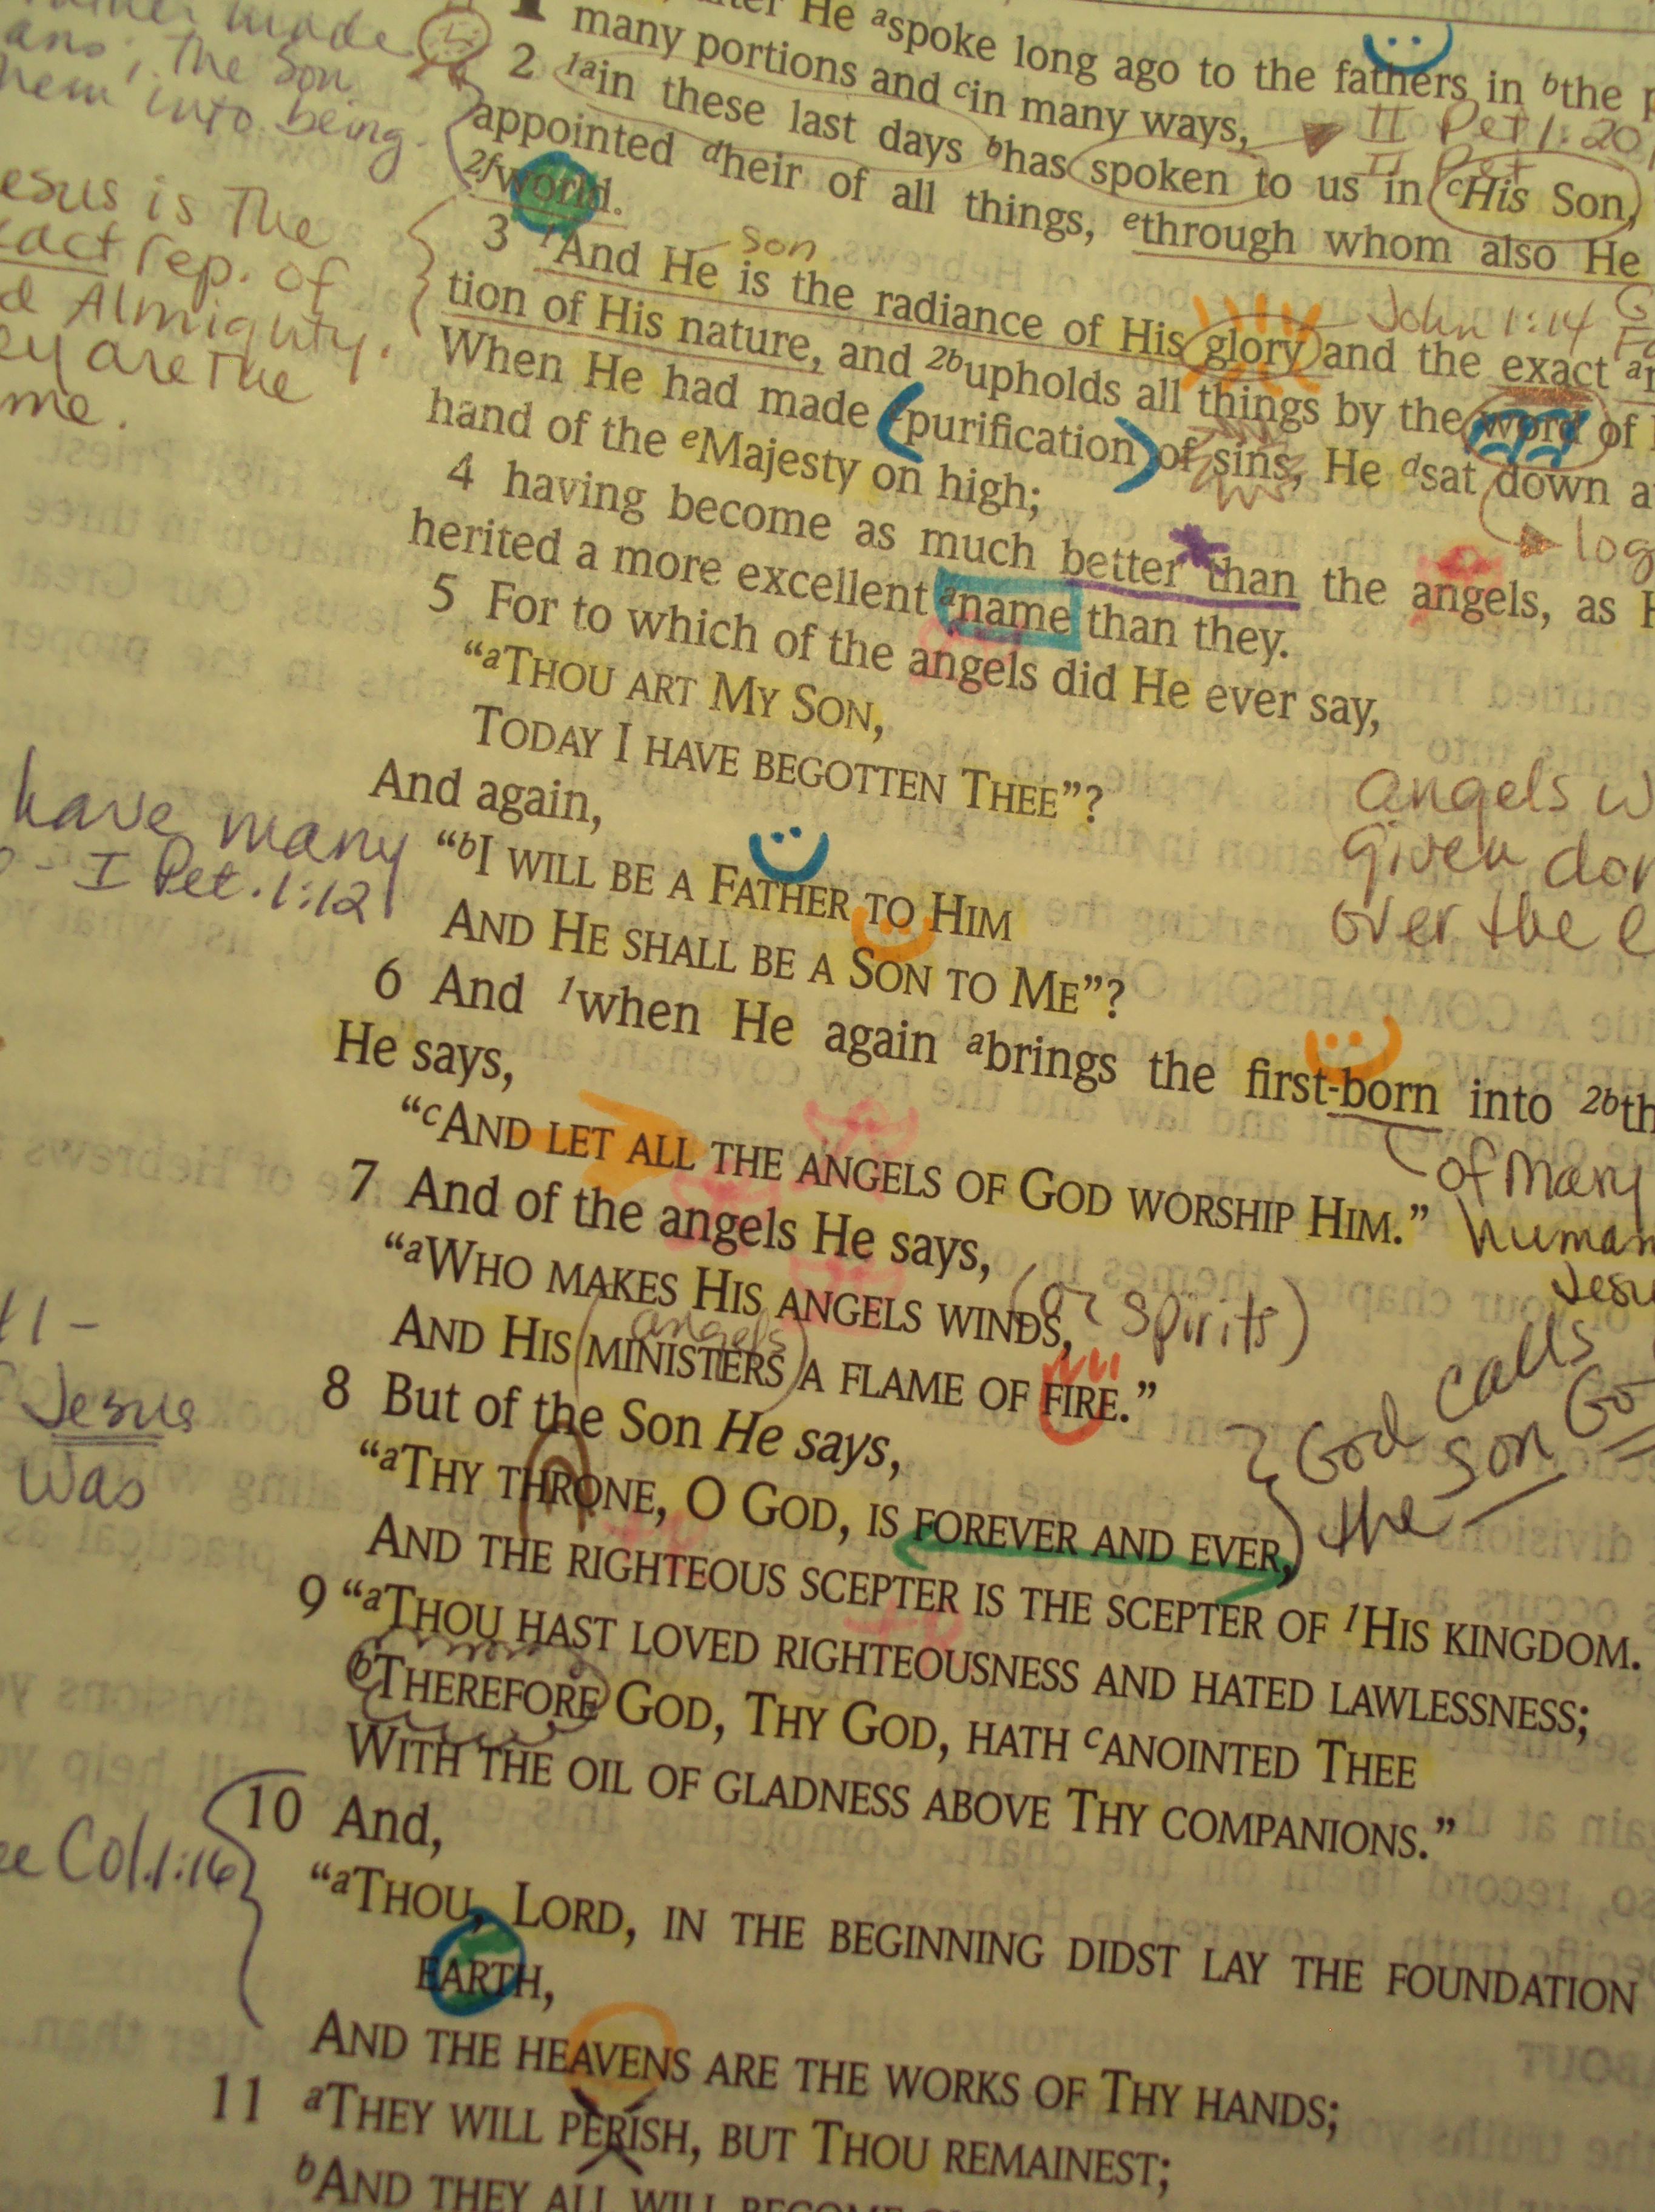 He ᵃspoke long ago to the fathers in ᵇthe
many portions and ᶜin many ways,
2 ¹ᵃin these last days ᵇhas spoken to us in ᶜHis Son,
appointed ᵈheir of all things, ᵉthrough whom also He
²ᶠworld.
3 ¹And He is the radiance of His glory and the exact
tion of His nature, and ²ᵇupholds all things by the word of
When He had made purification of sins, He ᵈsat down
hand of the ᵉMajesty on high;
4 having become as much better than the angels, as
herited a more excellent ᵃname than they.
5 For to which of the angels did He ever say,
“ᵃTHOU ART MY SON,
TODAY I HAVE BEGOTTEN THEE”?
And again,
“ᵇI WILL BE A FATHER TO HIM
AND HE SHALL BE A SON TO ME”?
6 And ¹when He again ᵃbrings the first-born into
He says,
“ᶜAND LET ALL THE ANGELS OF GOD WORSHIP HIM.”
7 And of the angels He says,
“ᵃWHO MAKES HIS ANGELS WINDS,
AND HIS MINISTERS A FLAME OF FIRE.”
8 But of the Son He says,
“ᵃTHY THRONE, O GOD, IS FOREVER AND EVER,
AND THE RIGHTEOUS SCEPTER IS THE SCEPTER OF ¹HIS KINGDOM.
9 “ᵃTHOU HAST LOVED RIGHTEOUSNESS AND HATED LAWLESSNESS;
ᵇTHEREFORE GOD, THY GOD, HATH ᶜANOINTED THEE
WITH THE OIL OF GLADNESS ABOVE THY COMPANIONS.”
10 And,
“ᵃTHOU, LORD, IN THE BEGINNING DIDST LAY THE FOUNDATION
EARTH,
AND THE HEAVENS ARE THE WORKS OF THY HANDS;
11 ᵃTHEY WILL PERISH, BUT THOU REMAINEST;
ᵇAND THEY ALL WILL BECOME
made
The Son
into being.
Jesus is The
rep. of
Almighty.
are The
have many
I Pet. 1:12
Jesus
was
Col. 1:16
II Pet 1:20
II Pet
son
John 1:14
angels
given
over the
of many
human
(or spirits)
angels
God calls
the son